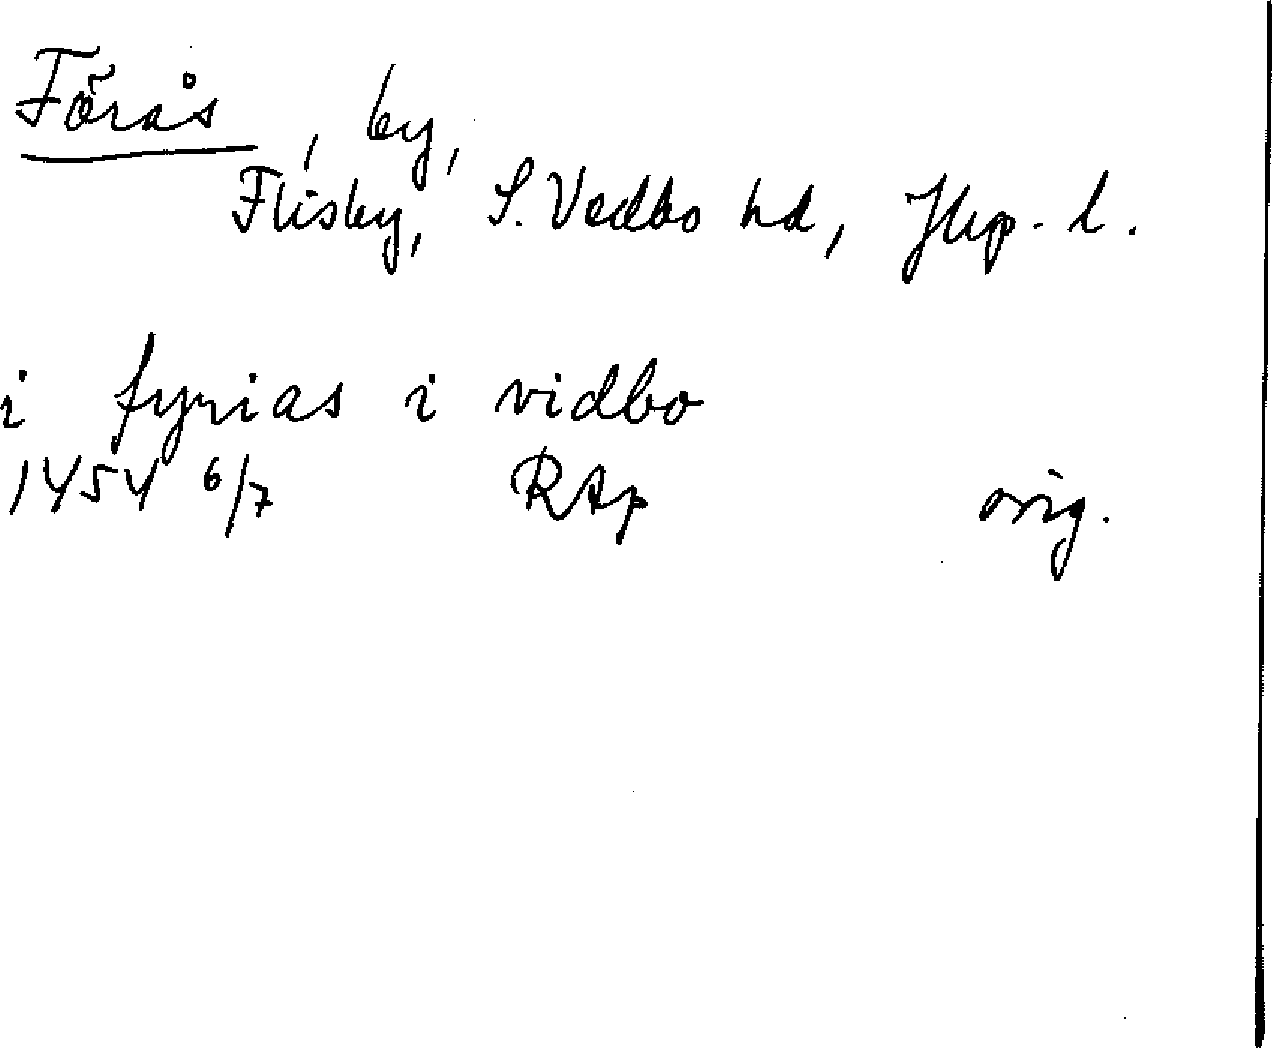 Förås, by,
Flisby, S. Vedbo hd, Jkp. l.
i fyrias i vidbo
1454 6/7 RAp orig.